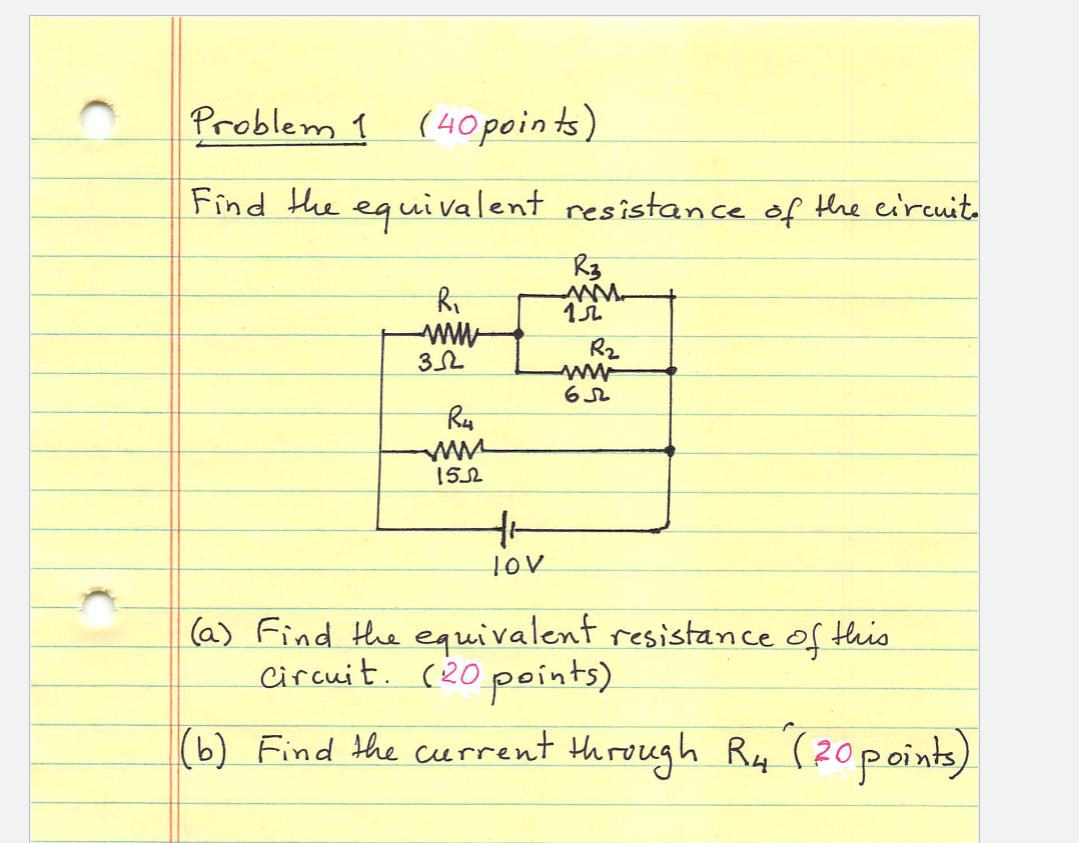 Problem 1 (40 points)
Find the equivalent resistance of the circuit.
R3
1Ω
R1
3Ω
R2
6Ω
R4
15Ω
10V
(a) Find the equivalent resistance of this
circuit. (20 points)
(b) Find the current through R4 (20 points)